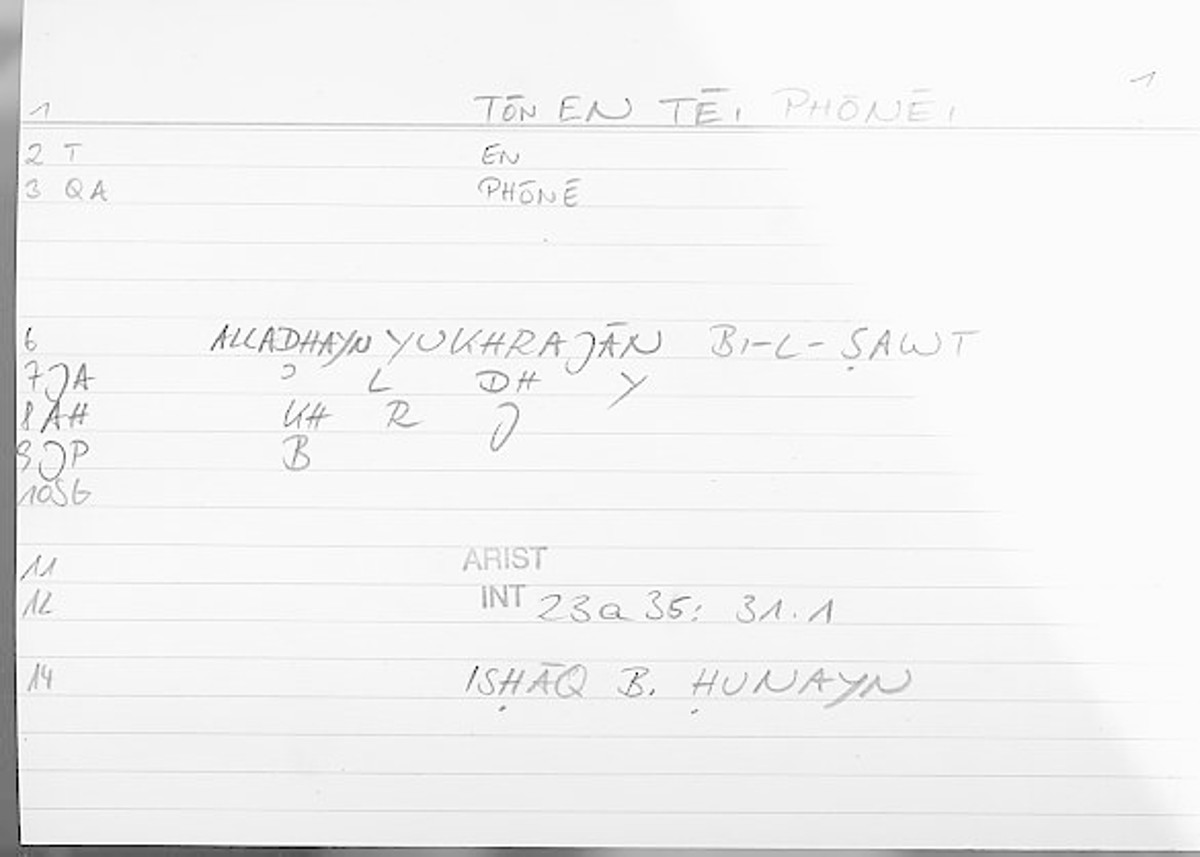 1
1 TŌN EN TĒI PHŌNĒI
2 T EN
3 QA PHŌNĒ
6 ALLADHAYN YUKHRAJĀN BI-L-ṢAWT
7 JA ʾ L DH Y
8 AH KH R J
9 JP B
10 SG
11 ARIST
12 INT 23a35: 31.1
14 ISḤĀQ B. ḤUNAYN